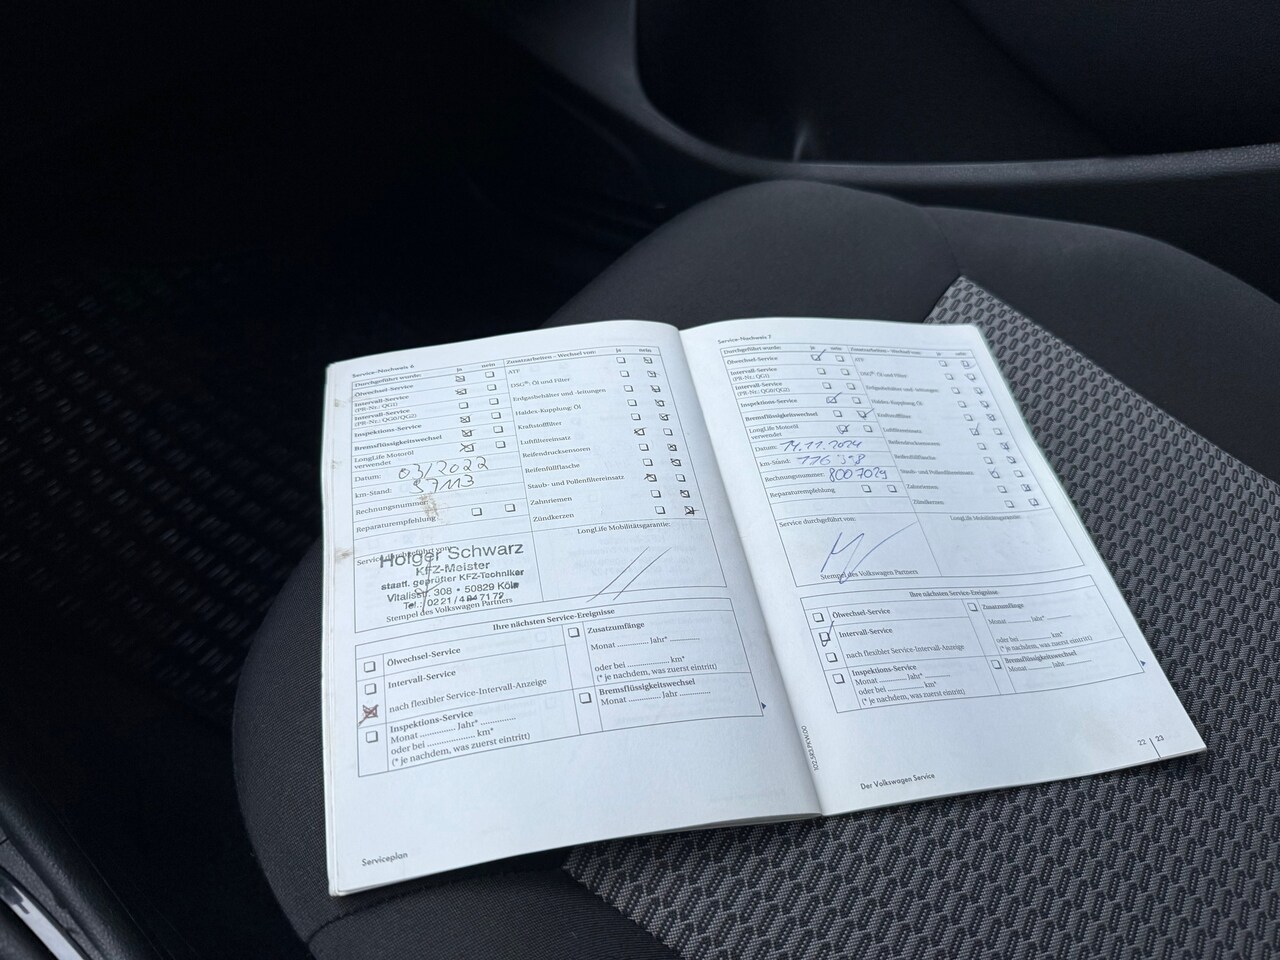 Service-Nachweis 6
Durchgeführt wurde: ja nein
Ölwechsel-Service
Intervall-Service
(PR-Nr.: QG1)
Intervall-Service
(PR-Nr.: QG0/QG2)
Inspektions-Service
Bremsflüssigkeitswechsel
LongLife Motoröl
verwendet
Datum: 03/2022
km-Stand:
Rechnungsnummer:
Reparaturempfehlung
Zusatzarbeiten – Wechsel von: ja nein
ATF
DSG®: Öl und Filter
Erdgasbehälter und -leitungen
Haldex-Kupplung: Öl
Kraftstofffilter
Luftfiltereinsatz
Reifendrucksensoren
Reifenfüllflasche
Staub- und Pollenfiltereinsatz
Zahnriemen
Zündkerzen
Service durchgeführt von:
Holger Schwarz
KFZ-Meister
staatl. geprüfter KFZ-Techniker
Vitalisstr. 308 • 50829 Köln
Stempel des Volkswagen Partners
LongLife Mobilitätsgarantie:
Ihre nächsten Service-Ereignisse
Ölwechsel-Service
Intervall-Service
nach flexibler Service-Intervall-Anzeige
Inspektions-Service
Monat .............. Jahr* ..............
oder bei .................... km*
(* je nachdem, was zuerst eintritt)
Zusatzumfänge
Monat ............. Jahr* ............
oder bei ................ km*
(* je nachdem, was zuerst eintritt)
Bremsflüssigkeitswechsel
Monat ............. Jahr ............
Serviceplan
Service-Nachweis 7
Durchgeführt wurde: ja nein
Ölwechsel-Service
Intervall-Service
(PR-Nr.: QG1)
Intervall-Service
(PR-Nr.: QG0/QG2)
Inspektions-Service
Bremsflüssigkeitswechsel
LongLife Motoröl
verwendet
Datum: 14.11.2024
km-Stand:
Rechnungsnummer: 8007029
Reparaturempfehlung
Zusatzarbeiten – Wechsel von: ja nein
ATF
DSG®: Öl und Filter
Erdgasbehälter und -leitungen
Haldex-Kupplung: Öl
Kraftstofffilter
Luftfiltereinsatz
Reifendrucksensoren
Reifenfüllflasche
Staub- und Pollenfiltereinsatz
Zahnriemen
Zündkerzen
Service durchgeführt von:
Stempel des Volkswagen Partners
LongLife Mobilitätsgarantie:
Ihre nächsten Service-Ereignisse
Ölwechsel-Service
Intervall-Service
nach flexibler Service-Intervall-Anzeige
Inspektions-Service
Monat ............ Jahr* ............
oder bei ................ km*
(* je nachdem, was zuerst eintritt)
Zusatzumfänge
Monat ............ Jahr* ............
oder bei ................ km*
(* je nachdem, was zuerst eintritt)
Bremsflüssigkeitswechsel
Monat ............ Jahr ............
Der Volkswagen Service
22 | 23